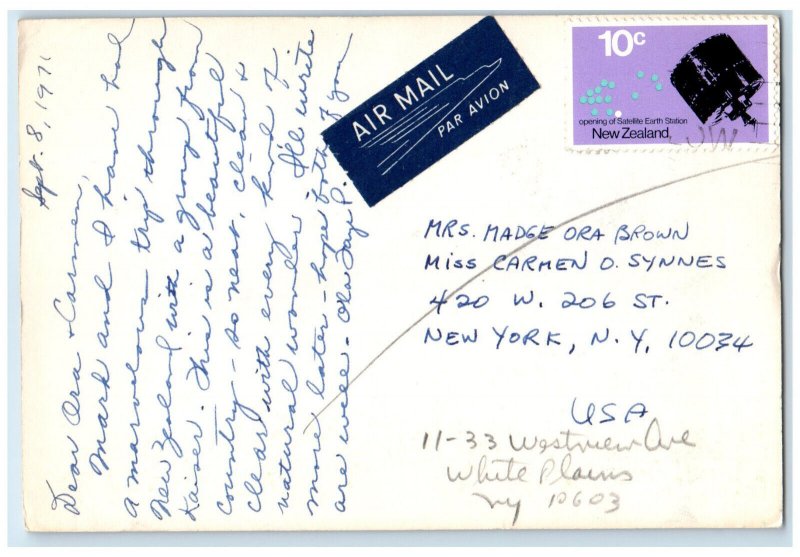 Sept. 8, 1971
Dear Ora & Carmen,
Mark and I have had
a marvelous trip through
New Zealand with a group from
Kaiser. This is a beautiful
country - so neat, clean &
clear with every kind of
natural wonder. I'll write
more later - hope both of you
are well. Ola Jay P.
AIR MAIL
PAR AVION
10c
opening of Satellite Earth Station
New Zealand
MRS. MADGE ORA BROWN
MISS CARMEN O. SYNNES
420 W. 206 ST.
NEW YORK, N.Y. 10034
USA
11-33 Westview Ave
White Plains
NY 10603